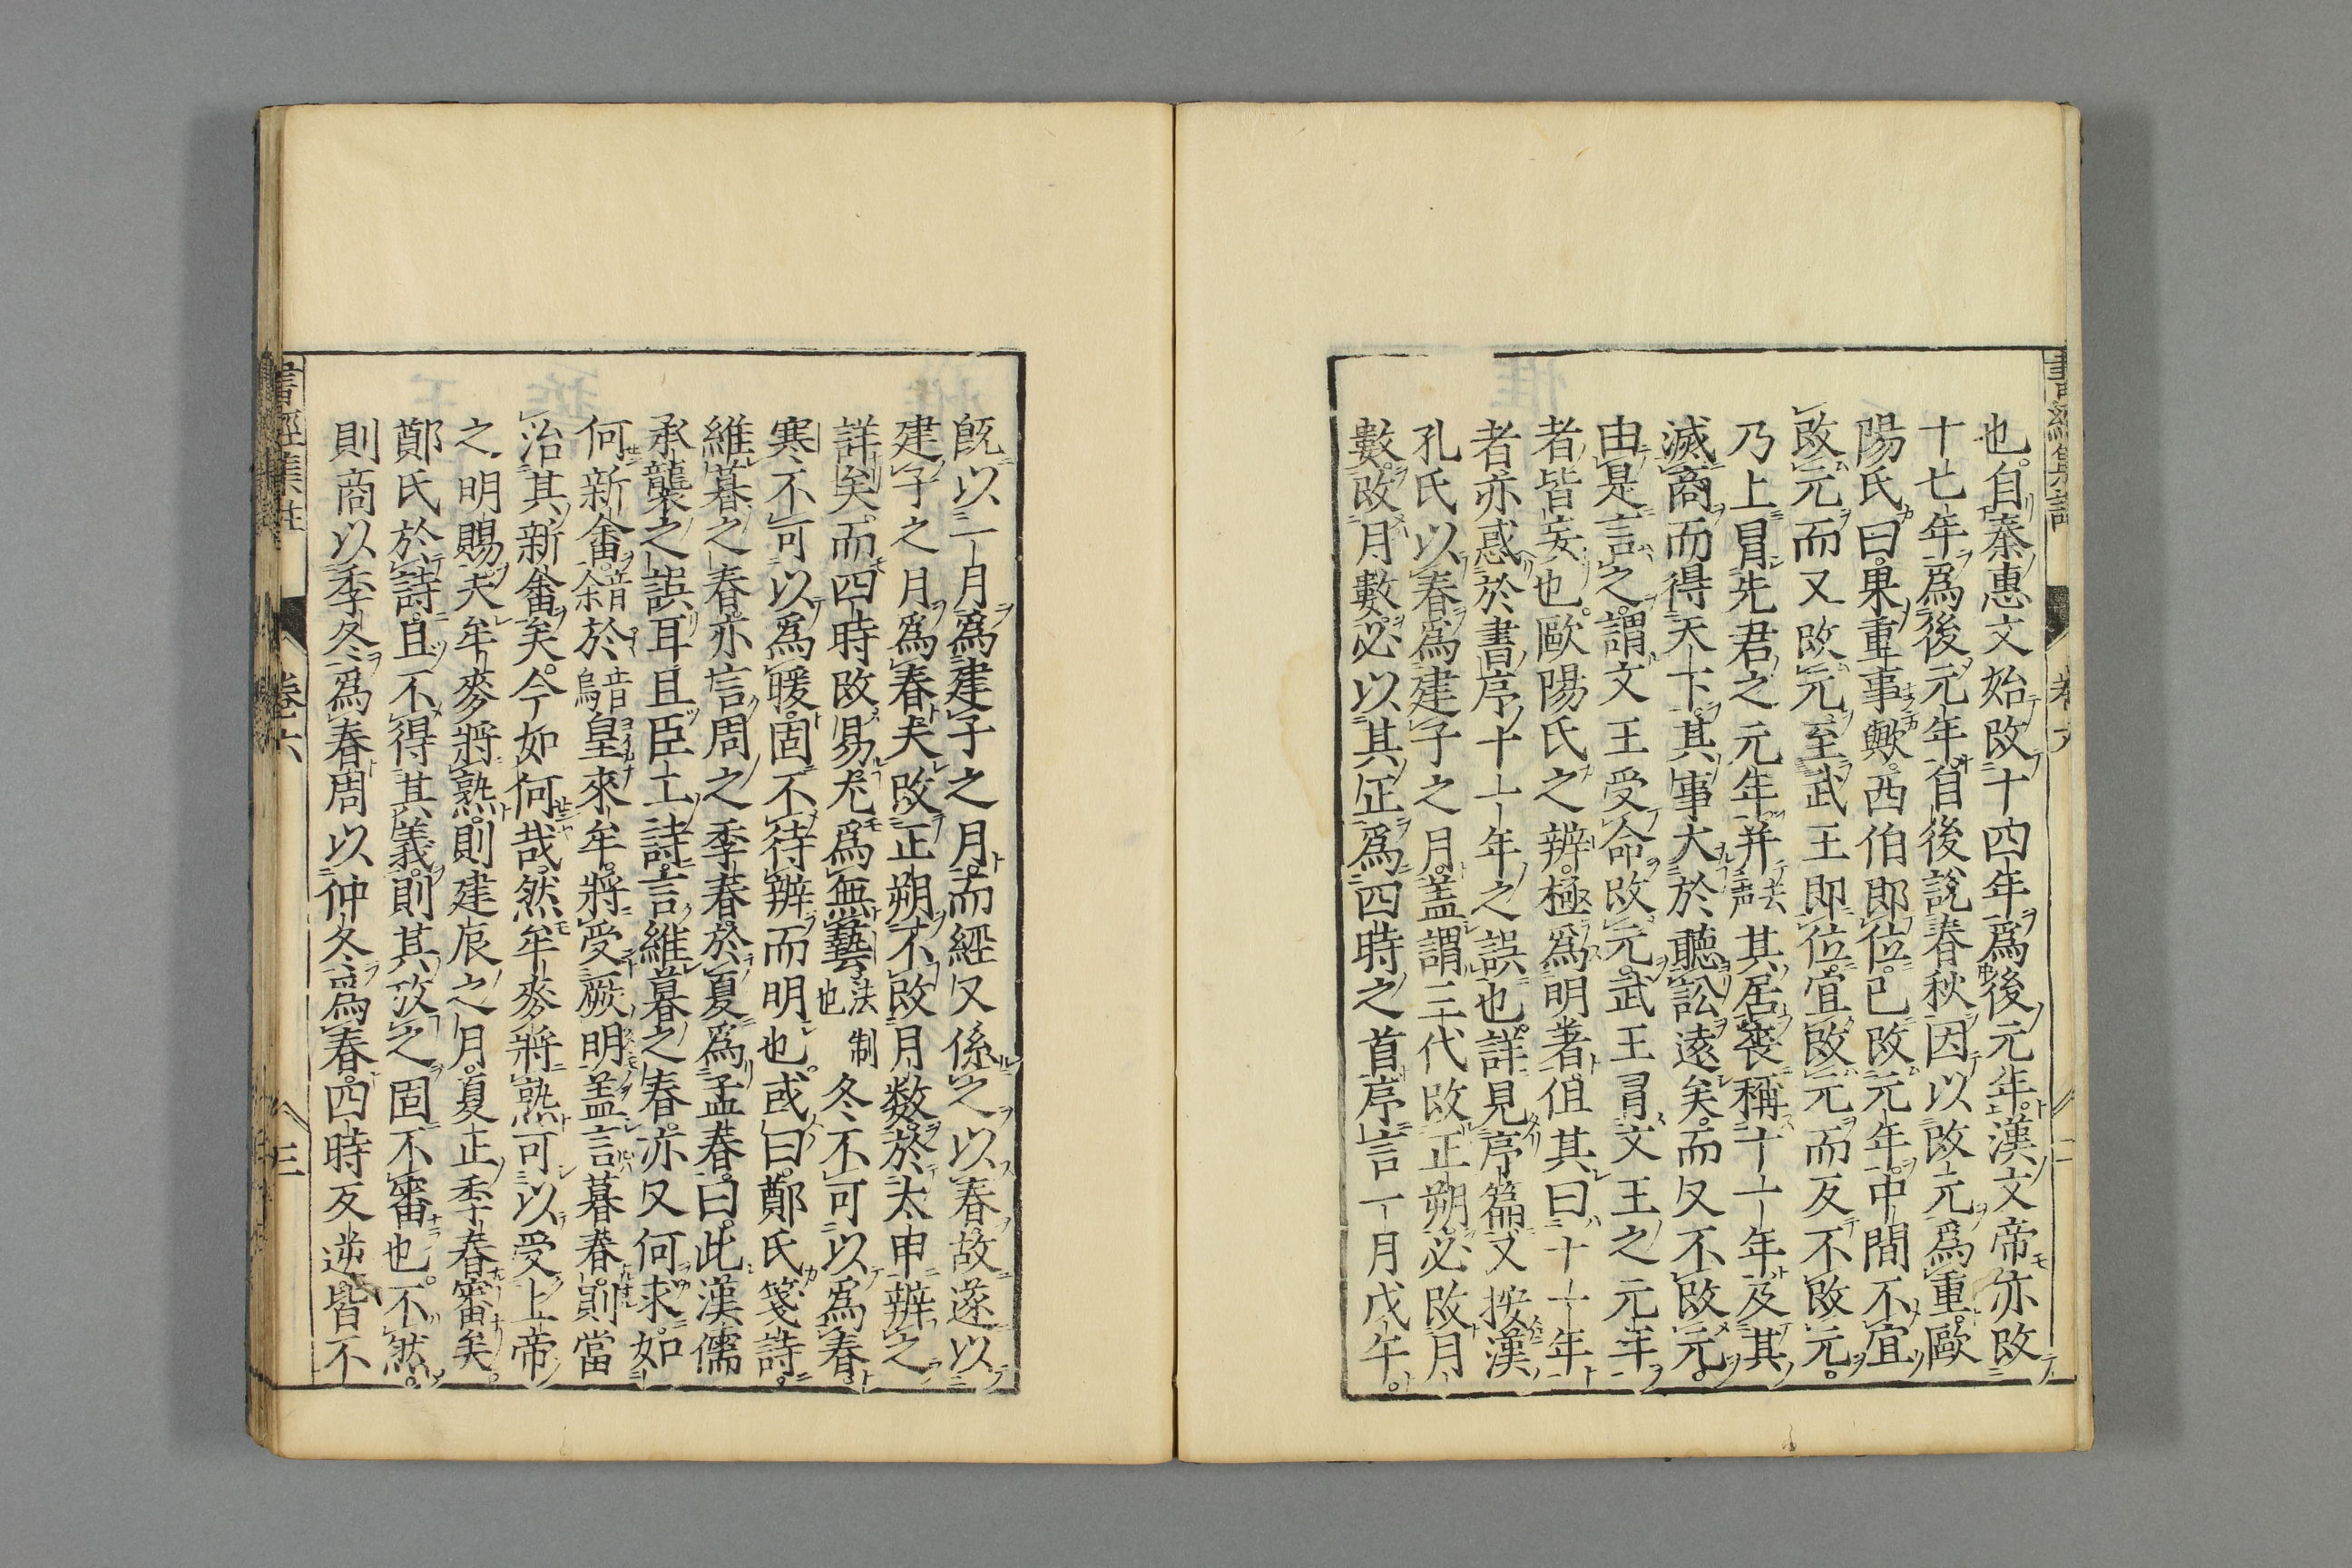 也自秦惠文始改十四年爲後元年漢文帝亦改
十七年爲後元年自後說春秋因以改元爲重歐
陽氏曰果重事歟西伯卽位已改元年中間不宜
改元而又改元至武王卽位宜改元而反不改元
乃上冒先君之元年并去声其居喪稱十一年及其
滅商而得天下其事大於聽訟遠矣而又不改元
由是言之謂文王受命改元武王冒文王之元年
者皆妄也歐陽氏之辨極爲明著但其曰十一年
者亦惑於書序十一年之誤也詳見序篇又按漢
孔氏以春爲建子之月蓋謂三代改正朔必改月
數改月數必以其正爲四時之首序言一月戊午
旣以一月爲建子之月而經又係之以春故遂以
建子之月爲春夫改正朔不改月数於太甲辨之
詳矣而四時改易尤爲無藝法制也冬不可以爲春
寒不可以爲暖固不待辨而明也或曰鄭氏箋詩
維暮之春亦言周之季春於夏爲孟春曰此漢儒
承襲之誤耳且臣工詩言維暮之春亦又何求如
何新畬音余於音烏皇來牟將受厥明蓋言暮春則當
治其新畬矣今如何哉然牟麥將熟可以受上帝
之明賜夫牟麥將熟則建辰之月夏正季春審矣
鄭氏於詩且不得其義則其攷之固不審也不然
則商以季冬爲春周以仲冬爲春四時反逆皆不
書經集註 卷六 三